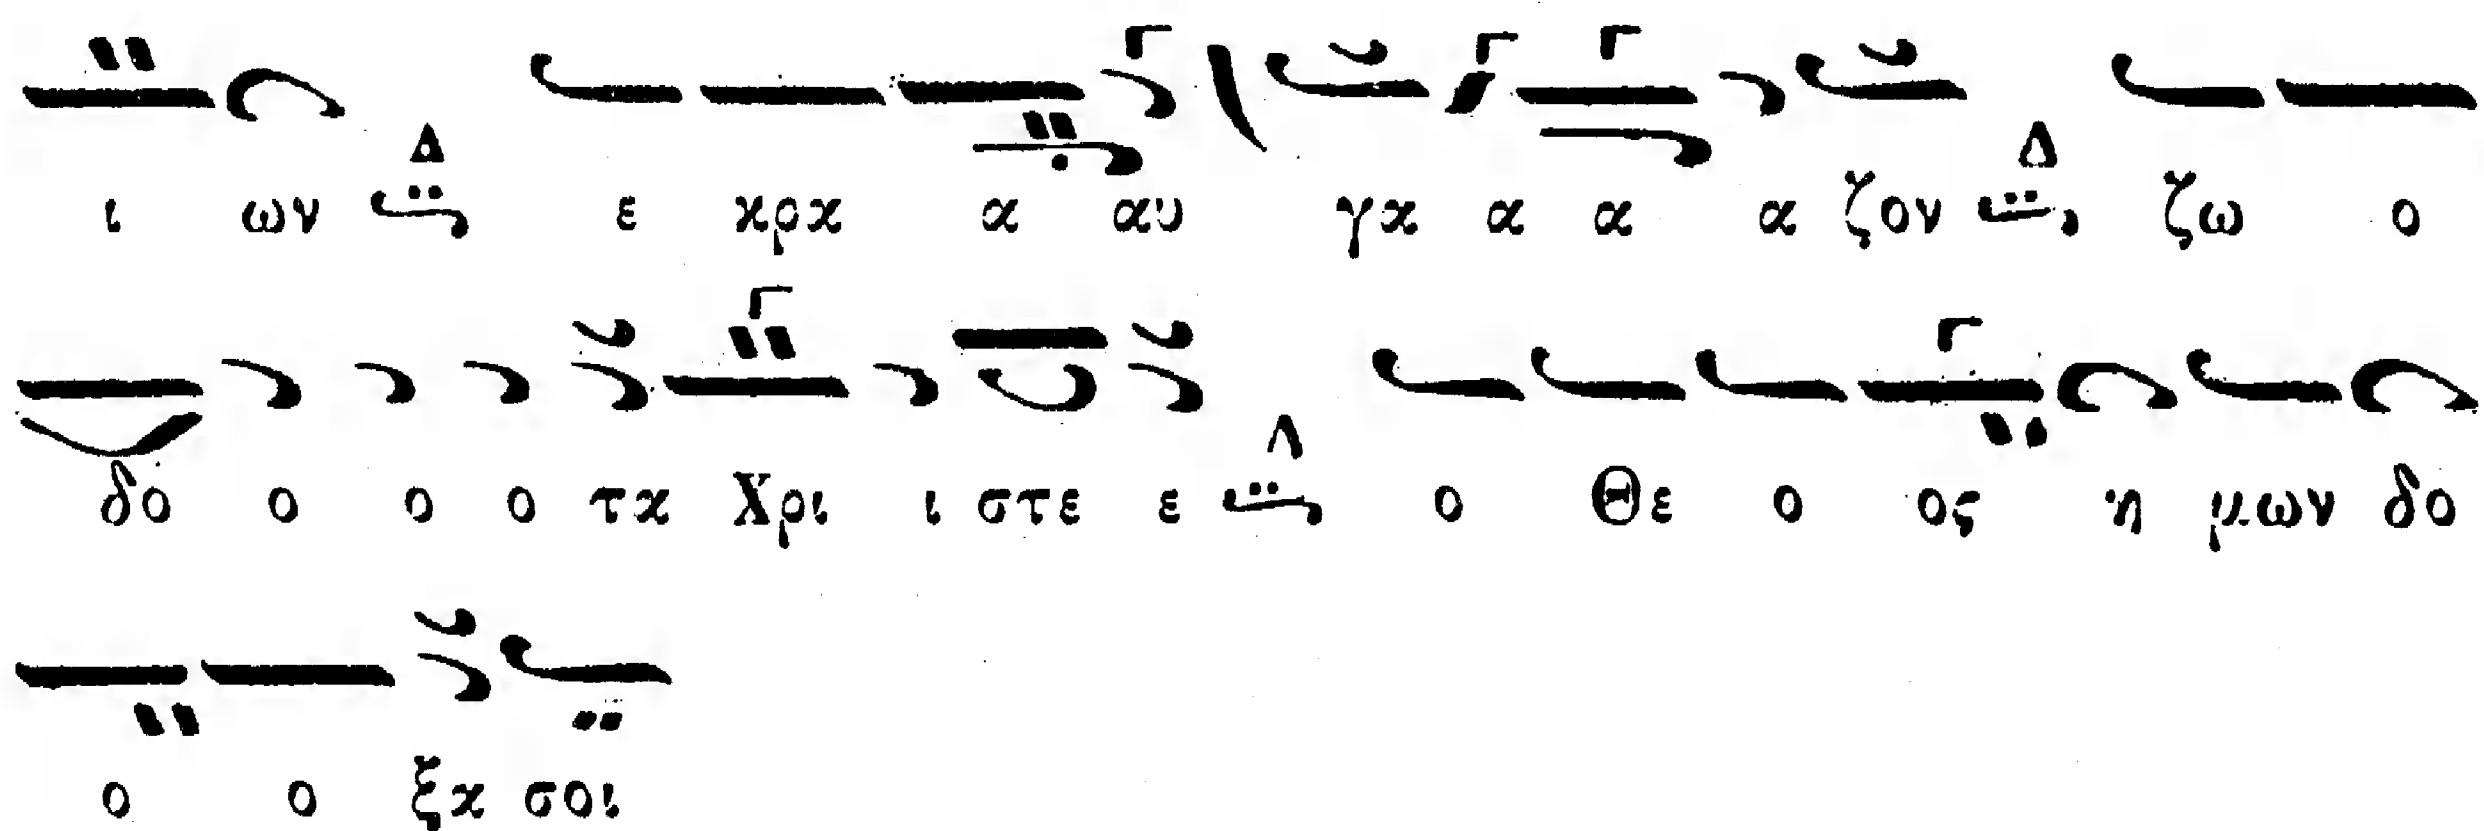 ι ων Δ ε κρα α αυ γα α α α ζον Δ ζω ο
δο ο ο ο τα Χρι ι στε ε Δ ο Θε ο ος η μων δο
ο ο ξα σοι